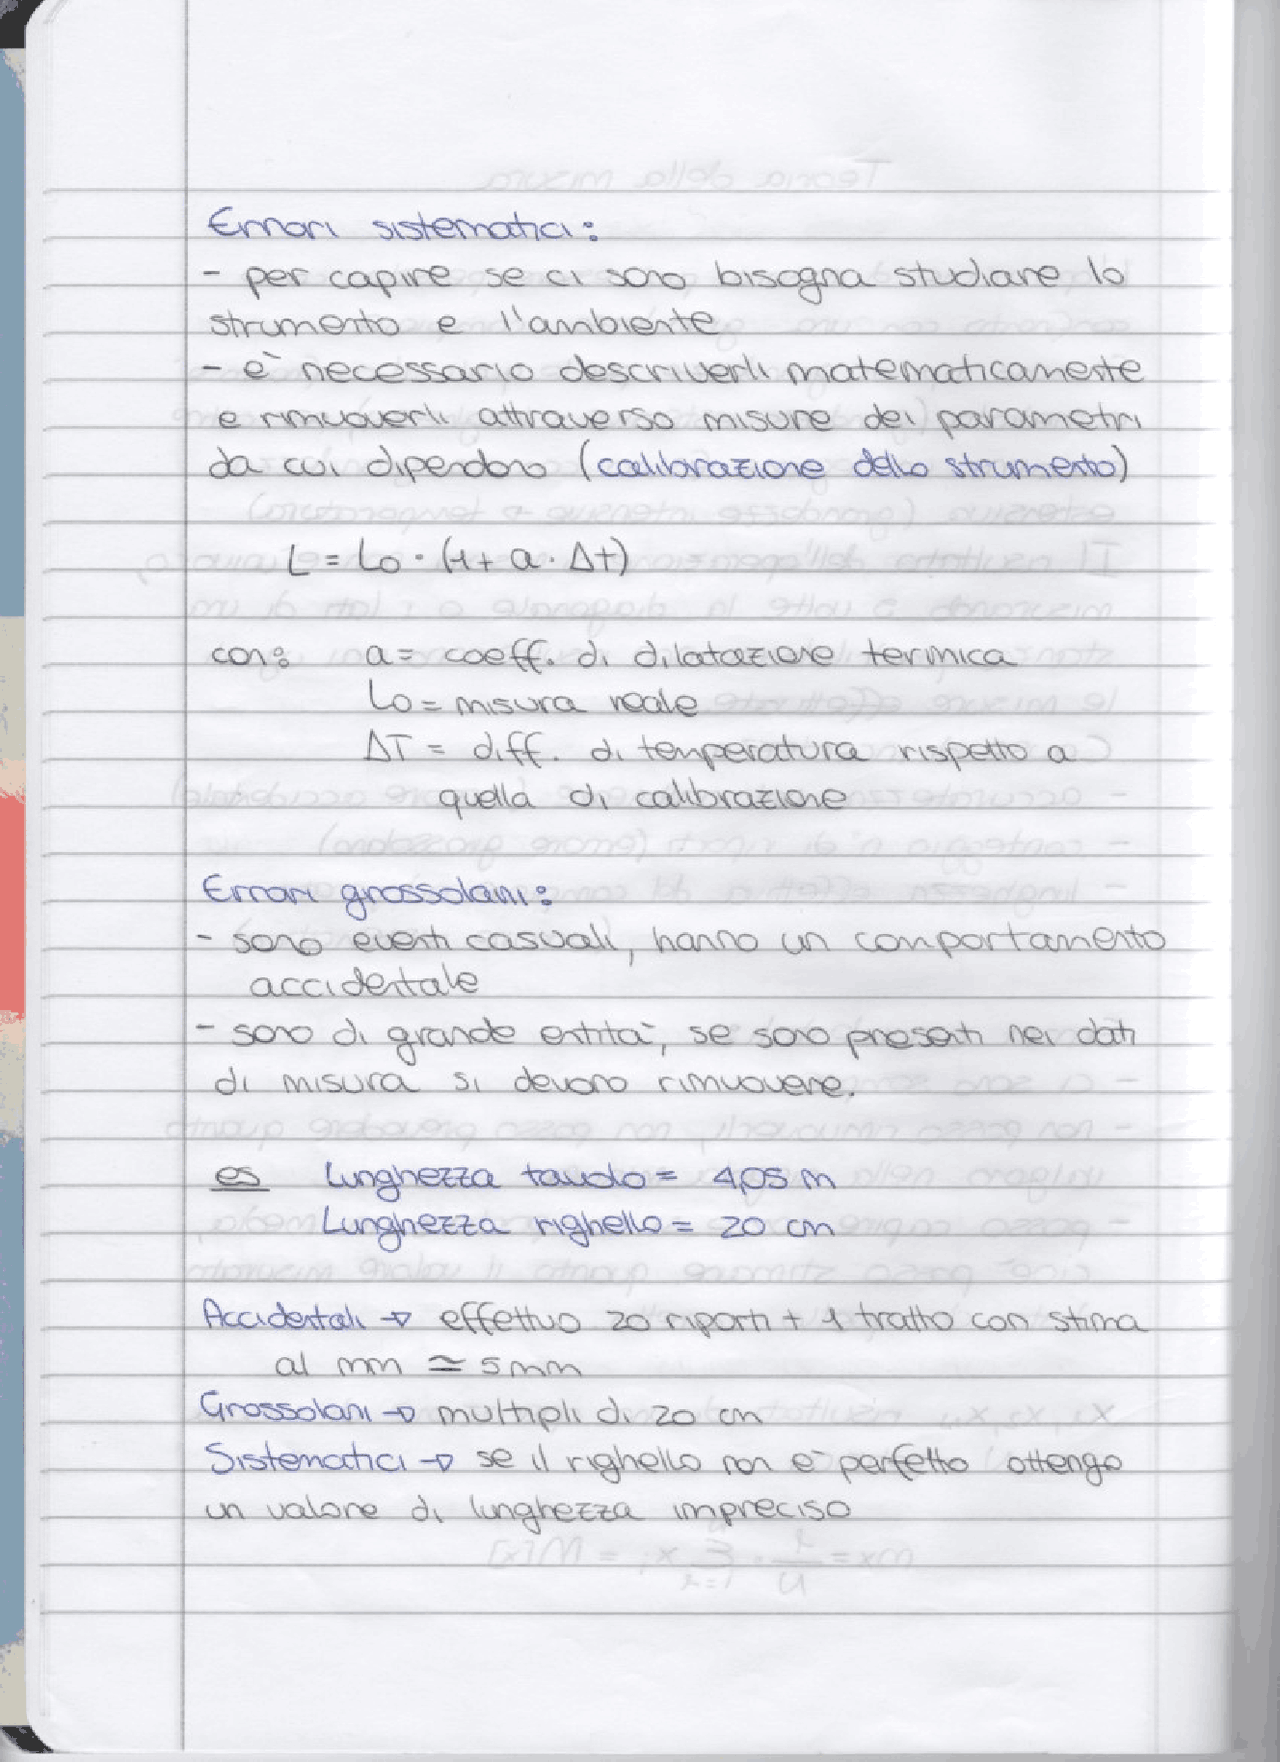 Errori sistematici:
- per capire se ci sono bisogna studiare lo
strumento e l'ambiente
- è necessario descriverli matematicamente
e rimuoverli attraverso misure dei parametri
da cui dipendono (calibrazione dello strumento)
L = L0 · (1 + a · Δt)
con: a = coeff. di dilatazione termica
L0 = misura reale
ΔT = diff. di temperatura rispetto a
quella di calibrazione
Errori grossolani:
- sono eventi casuali, hanno un comportamento
accidentale
- sono di grande entità, se sono presenti nei dati
di misura si devono rimuovere.
es Lunghezza tavolo = 4,05 m
Lunghezza righello = 20 cm
Accidentali → effettuo 20 riporti + 1 tratto con stima
al mm ≃ 5 mm
Grossolani → multipli di 20 cm
Sistematici → se il righello non è perfetto ottengo
un valore di lunghezza impreciso